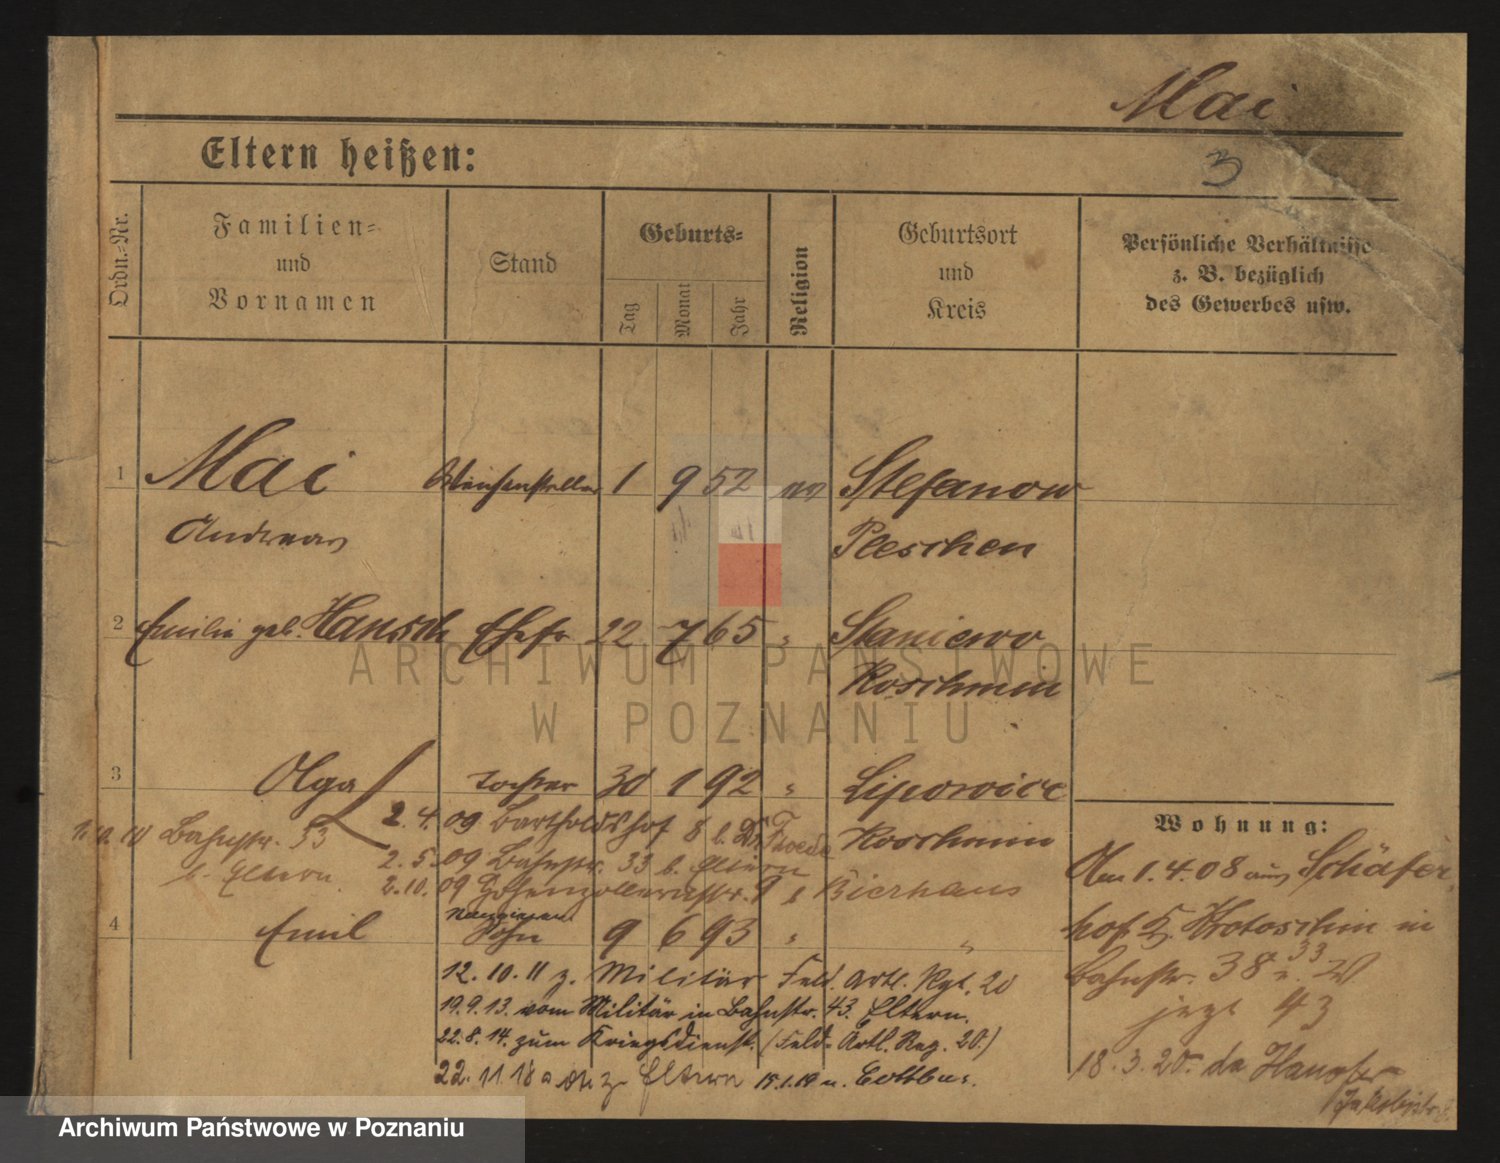 Mai
3
Eltern heißen:
Ordn.-Nr.
Familien-
und
Vornamen
Stand
Geburts-
Tag
Monat
Jahr
Religion
Geburtsort
und
Kreis
Persönliche Verhältnisse
z. B. bezüglich
des Gewerbes usw.
1 Mai Weichensteller 1 9 52 Stefanow
Andreas Pleschen
2 Emilie geb. Hansch Ehefr 22 7 65 " Staniewo
Koschmin
3 Olga Tochter 30 1 92 " Lipowice
Koschmin
2. 4. 09 Bartholdshof 8 b.
Bahnstr. 33
b. Eltern
2. 5. 09 Bahnstr. 33 b. Eltern
2. 10. 09 Hohenzollernstr. 9 Bierhaus
4 Emil Sohn 9 6 93 " "
12. 10. 11 z. Militär Feld. Artl. Rgt. 20
19. 9. 13. vom Militär in Bahnstr. 43. Eltern.
22. 8. 14. zum Kriegsdienst. (Feld-Artl. Reg. 20.)
22. 11. 18 z Eltern 15.1.19 n. Cottbus.
Wohnung:
Am 1. 4. 08 aus Schäfer
hof K. Krotoschin in
Bahnstr. 38 33
jezt 43
18. 3. 20.
ARCHIWUM PAŃSTWOWE
W POZNANIU
Archiwum Państwowe w Poznaniu